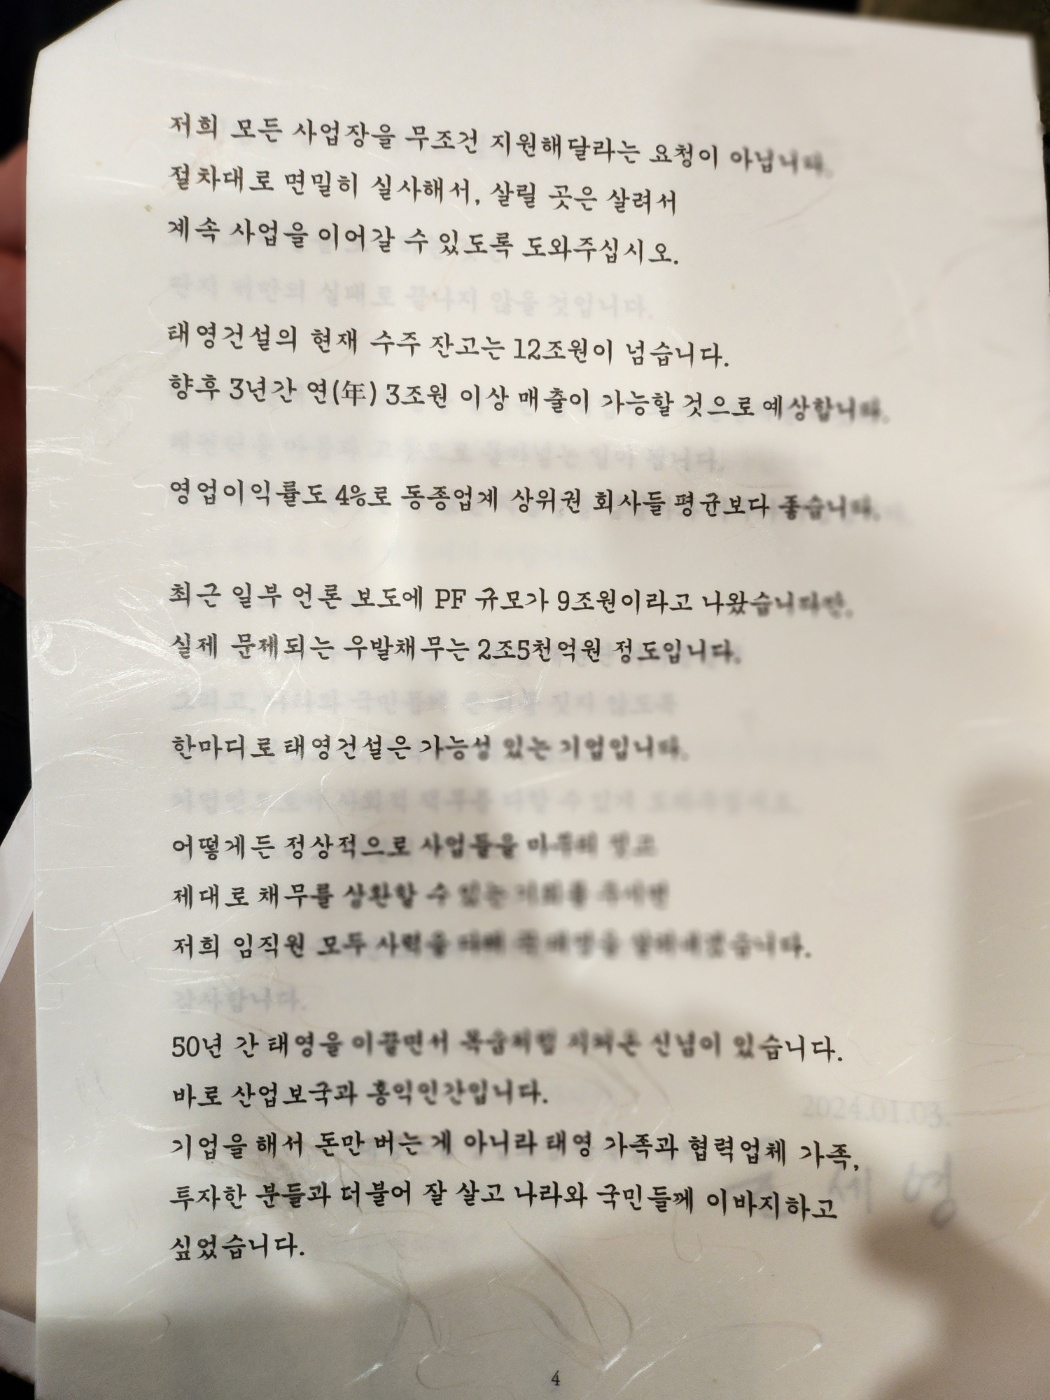 저희 모든 사업장을 무조건 지원해달라는 요청이 아닙니다.
절차대로 면밀히 실사해서, 살릴 곳은 살려서
계속 사업을 이어갈 수 있도록 도와주십시오.
태영건설의 현재 수주 잔고는 12조원이 넘습니다.
향후 3년간 연(年) 3조원 이상 매출이 가능할 것으로 예상합니다.
영업이익률도 4%로 동종업계 상위권 회사들 평균보다 좋습니다.
최근 일부 언론 보도에 PF 규모가 9조원이라고 나왔습니다만,
실제 문제되는 우발채무는 2조5천억원 정도입니다.
한마디로 태영건설은 가능성 있는 기업입니다.
어떻게든 정상적으로 사업들을 마무리 짓고
제대로 채무를 상환할 수 있는 기회를 주시면
저희 임직원 모두 사력을 다해
50년 간 태영을 이끌면서 목숨처럼 지켜온 신념이 있습니다.
바로 산업보국과 홍익인간입니다.
기업을 해서 돈만 버는 게 아니라 태영 가족과 협력업체 가족,
투자한 분들과 더불어 잘 살고 나라와 국민들께 이바지하고
싶었습니다.
2024.01.03.
4